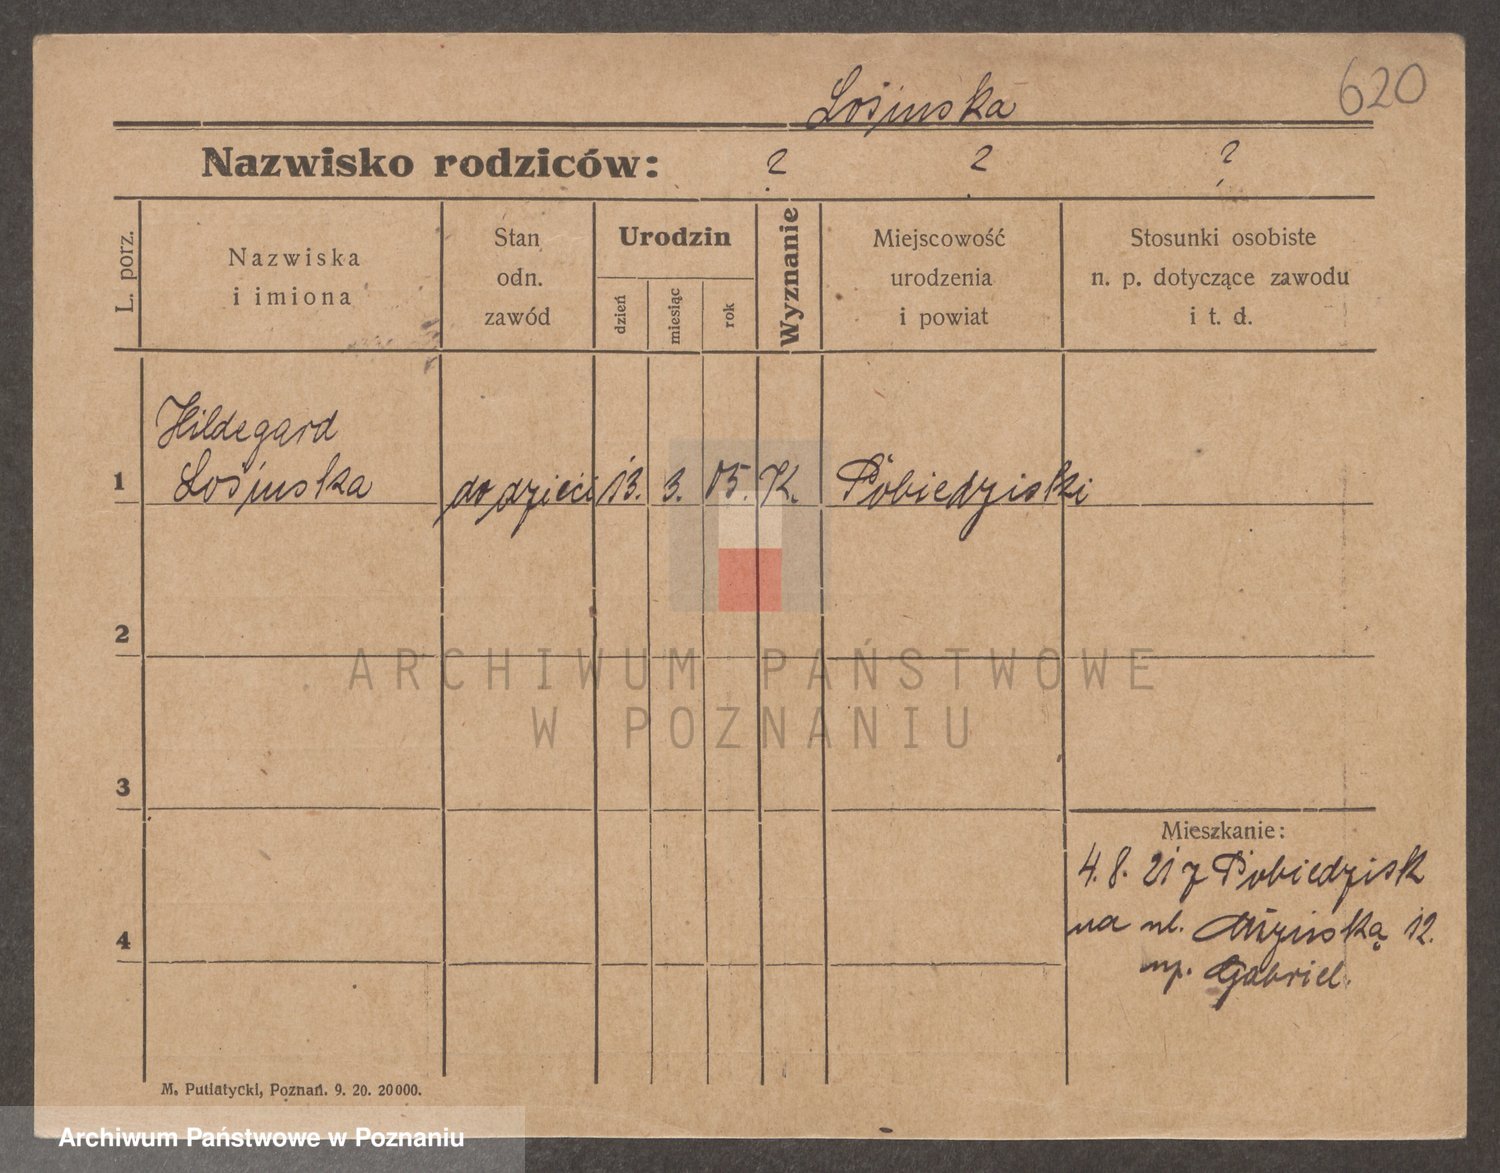 620
Łosińska
Nazwisko rodziców: ? ? ?
L. porz.
Nazwiska
i imiona
Stan
odn.
zawód
Urodzin
dzień
miesiąc
rok
Wyznanie
Miejscowość
urodzenia
i powiat
Stosunki osobiste
n. p. dotyczące zawodu
i t. d.
Hildegard
1 Łosińska do dzieci 13. 3. 05. K. Pobiedziski
2
3
4
Mieszkanie:
4. 8. 21 z Pobiedzisk
na ul. 12.
np. Gabriel.
M. Putiatycki, Poznań. 9. 20. 20000.
ARCHIWUM PAŃSTWOWE
W POZNANIU
Archiwum Państwowe w Poznaniu